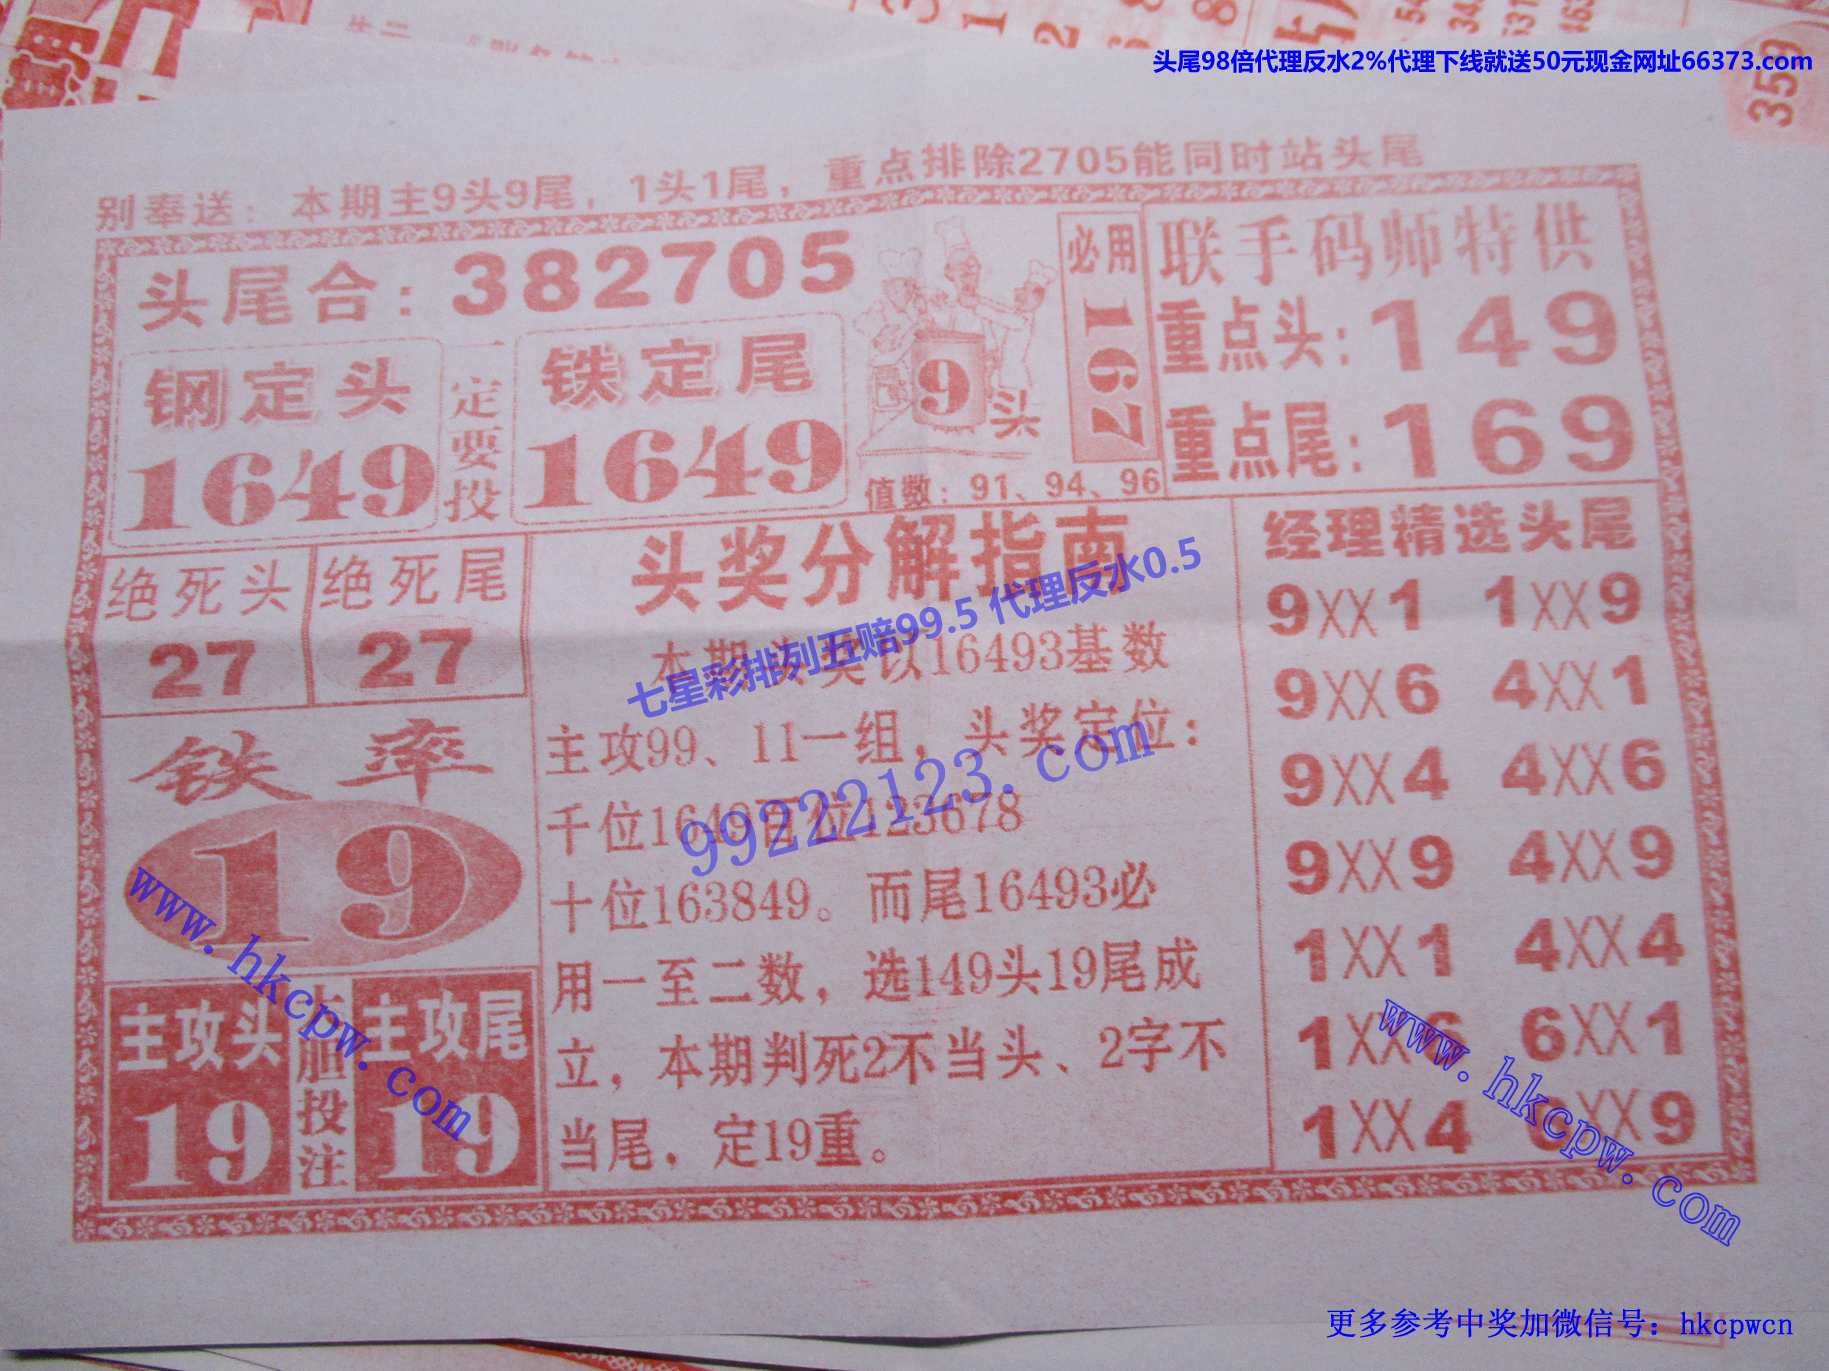 头尾98倍代理反水2%代理下线就送50元现金网址66373.com
359
别奉送：本期主9头9尾，1头1尾，重点排除2705能同时站头尾
头尾合：382705
钢定头
1649
一定要投
铁定尾
1649
9头
值数：91、94、96
必用
167
联手码师特供
重点头：149
重点尾：169
绝死头
27
绝死尾
27
铁率
19
主攻头
19
胆投注
主攻尾
19
头奖分解指南
本期头奖以16493基数
主攻99、11一组，头奖定位：
千位1649百位123678
十位163849。而尾16493必
用一至二数，选149头19尾成
立，本期判死2不当头、2字不
当尾，定19重。
经理精选头尾
9XX1 1XX9
9XX6 4XX1
9XX4 4XX6
9XX9 4XX9
1XX1 4XX4
1XX6 6XX1
1XX4 6XX9
七星彩排列五赔99.5 代理反水0.5
99222123.com
www.hkcpw.com
www.hkcpw.com
更多参考中奖加微信号：hkcpwcn